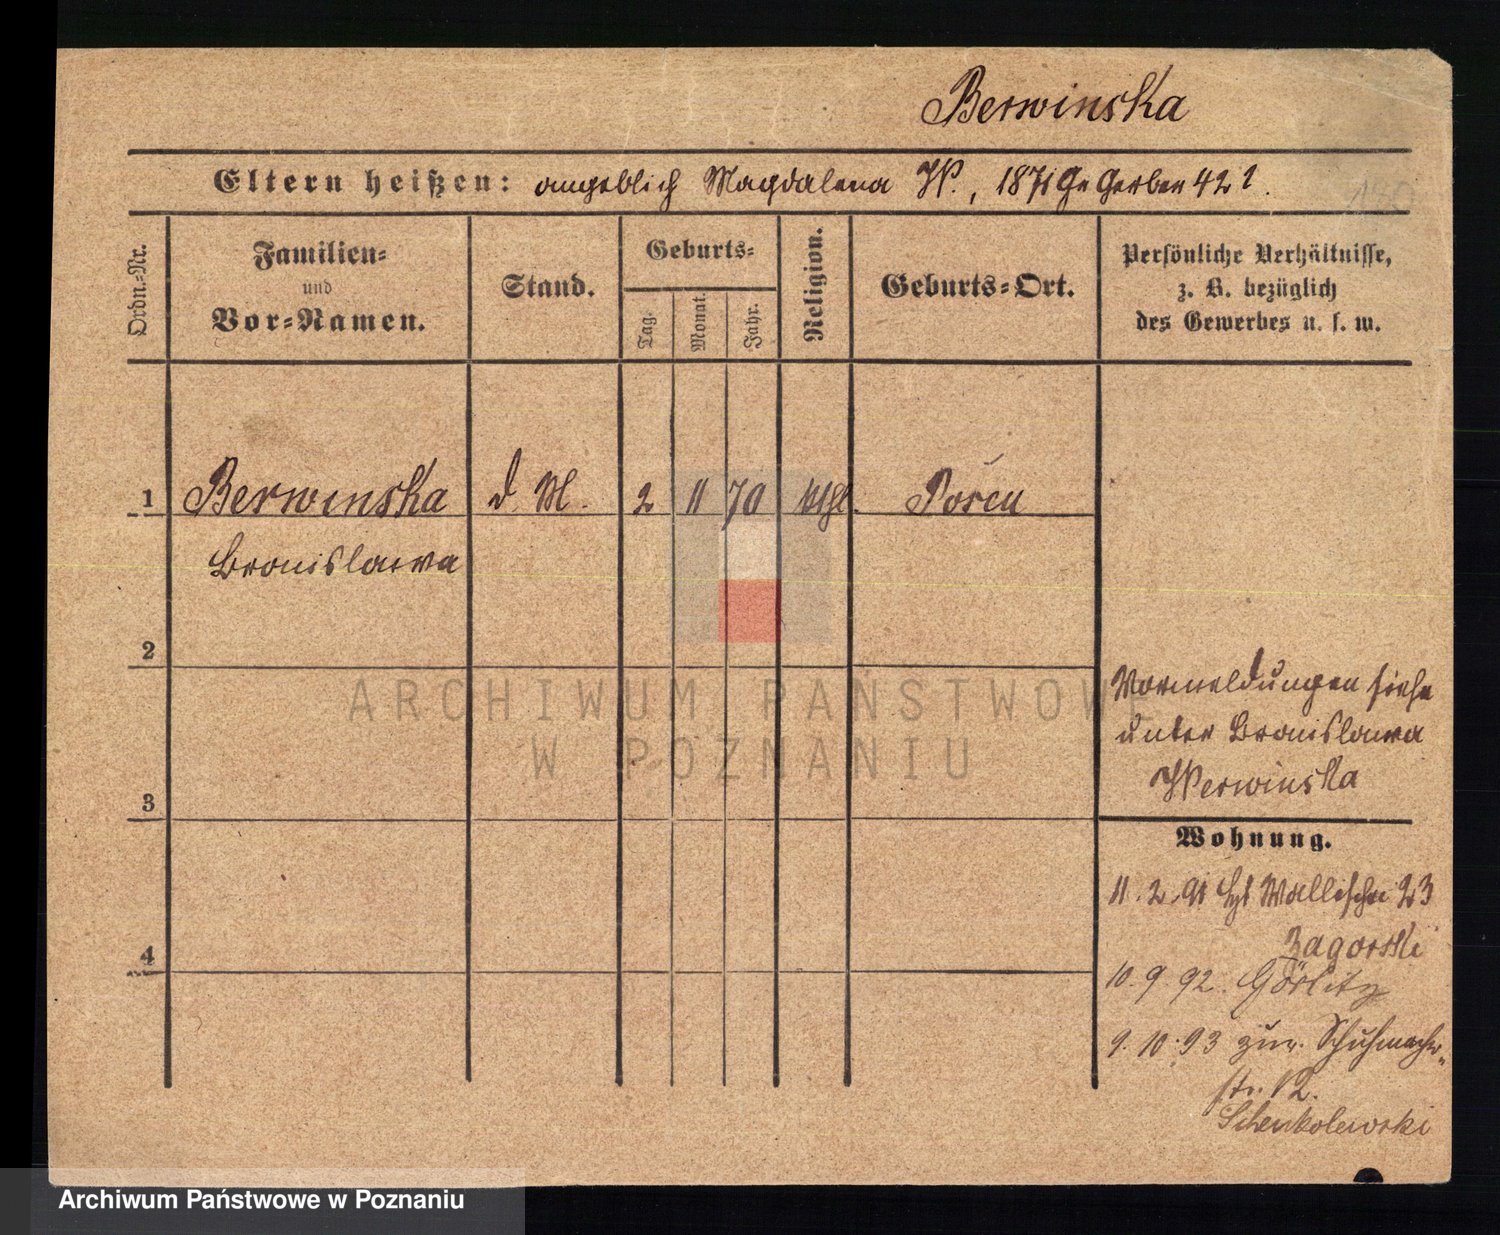 Berwinska
Eltern heißen: angeblich Magdalena W., 1871 Gr Gerber 42 2.
Ordn.-Nr.
Familien-
und
Vor-Namen.
Stand.
Geburts-
Tag.
Monat.
Jahr.
Religion.
Geburts-Ort.
Persönliche Verhältnisse,
z. B. bezüglich
des Gewerbes u. s. w.
1 Berwinska d. M. 2 11 70 kthl. Posen
Bronislawa
2
3
4
Vormeldungen siehe
unter Bronislawa
Werwinska
Wohnung.
11.2.91 Wallischei 23
Zagorski
10.9.92. Görlitz
9.10.93 zur. Schuhmacher-
str. 12.
Schenkolewski
ARCHIWUM PAŃSTWOWE
W POZNANIU
Archiwum Państwowe w Poznaniu